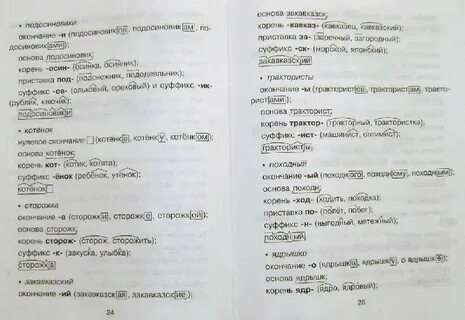 • подосиновики
окончание -и (подосиновиков, подосиновикам, подосиновиками);
основа подосиновик;
корень -осин- (осинка, осинник);
приставка под- (подснежник, пододеяльник);
суффикс -ов- (ольховый, ореховый) и суффикс -ик-
(рублик, ключик);
подосиновики
• котёнок
нулевое окончание (котёнка, котёнку, котёнком);
основа котёнок;
корень кот- (котик, котята);
суффикс -ёнок (ребёнок, утёнок);
котёнок
• сторожка
окончание -а (сторожки, сторожке, сторожкой);
основа сторожк;
корень сторож- (сторож, сторожить);
суффикс -к- (закуска, улыбка);
сторожка
• закавказский
окончание -ий (закавказская, закавказские);
24
основа закавказск;
корень -кавказ- (кавказец, кавказский);
приставка за- (заречный, загородный);
суффикс -ск- (морской, японский);
закавказский
• трактористы
окончание -ы (трактористов, трактористам, трактор-
истами);
основа тракторист;
корень трактор- (тракторный, трактористка);
суффикс -ист- (машинист, оптимист);
трактористы
• походный
окончание -ый (походного, походному, походным);
основа походн;
корень -ход- (ходить, походка);
приставка по- (полёт, побег);
суффикс -н- (выгодный, мятежный);
походный
• ядрышко
окончание -о (ядрышка, ядрышку, о ядрышке);
основа ядрышк;
корень ядр- (ядро, ядровый);
25